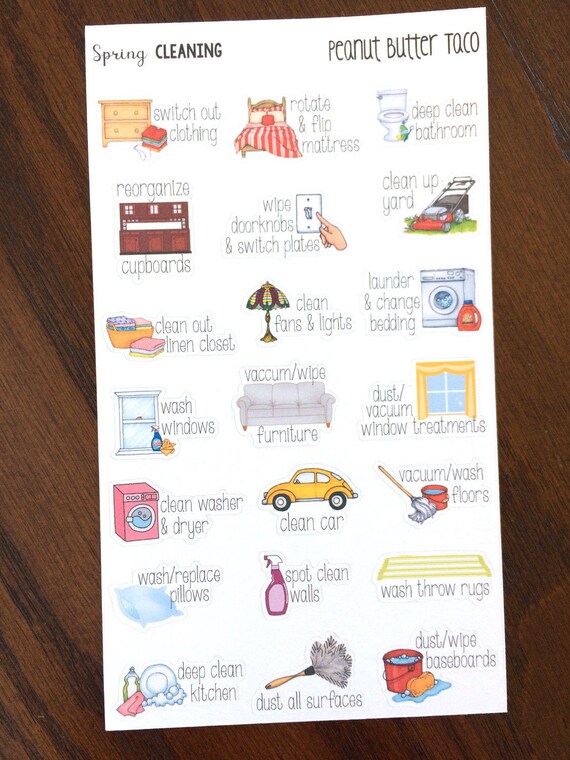 Spring CLEANING
Peanut Butter Taco
switch out
clothing
rotate
& flip
mattress
deep clean
bathroom
reorganize
cupboards
wipe
doorknobs
& switch plates
clean up
yard
clean out
linen closet
clean
fans & lights
launder
& change
bedding
wash
windows
vaccum/wipe
furniture
dust/
vacuum
window treatments
clean washer
& dryer
clean car
vacuum/wash
floors
wash/replace
pillows
spot clean
walls
wash throw rugs
deep clean
kitchen
dust all surfaces
dust/wipe
baseboards